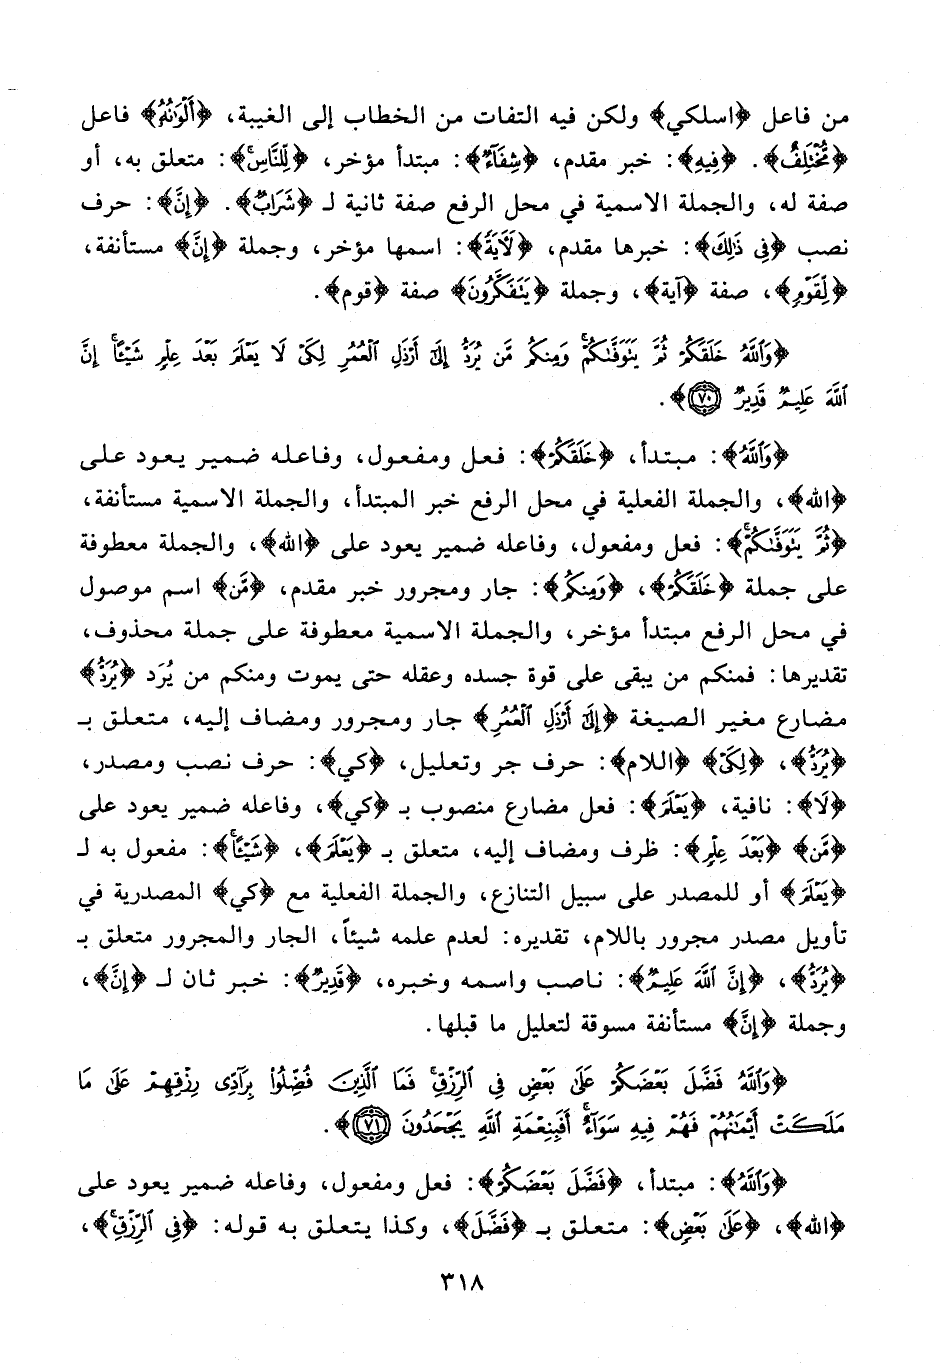 من فاعل ﴿اسلكي﴾ ولكن فيه التفات من الخطاب إلى الغيبة، ﴿أَلْوَٰنُهُۥ﴾ فاعل
﴿مُّخْتَلِفٌ﴾. ﴿فِيهِ﴾: خبر مقدم، ﴿شِفَآءٌ﴾: مبتدأ مؤخر، ﴿لِّلنَّاسِۚ﴾: متعلق به، أو
صفة له، والجملة الاسمية في محل الرفع صفة ثانية لـ ﴿شَرَابٌ﴾. ﴿إِنَّ﴾: حرف
نصب ﴿فِى ذَٰلِكَ﴾: خبرها مقدم، ﴿لَآيَةً﴾: اسمها مؤخر، وجملة ﴿إِنَّ﴾ مستأنفة،
﴿لِّقَوْمٍ﴾، صفة ﴿آية﴾، وجملة ﴿يَتَفَكَّرُونَ﴾ صفة ﴿قوم﴾.
﴿وَٱللَّهُ خَلَقَكُمْ ثُمَّ يَتَوَفَّىٰكُمْۚ وَمِنكُم مَّن يُرَدُّ إِلَىٰٓ أَرْذَلِ ٱلْعُمُرِ لِكَىْ لَا يَعْلَمَ بَعْدَ عِلْمٍ شَيْـًٔاۚ إِنَّ
ٱللَّهَ عَلِيمٌ قَدِيرٌ ٧٠﴾.
﴿وَٱللَّهُ﴾: مبتدأ، ﴿خَلَقَكُمْ﴾: فعل ومفعول، وفاعله ضمير يعود على
﴿الله﴾، والجملة الفعلية في محل الرفع خبر المبتدأ، والجملة الاسمية مستأنفة،
﴿ثُمَّ يَتَوَفَّىٰكُمْۚ﴾: فعل ومفعول، وفاعله ضمير يعود على ﴿الله﴾، والجملة معطوفة
على جملة ﴿خَلَقَكُمْ﴾، ﴿وَمِنكُم﴾: جار ومجرور خبر مقدم، ﴿مَّن﴾ اسم موصول
في محل الرفع مبتدأ مؤخر، والجملة الاسمية معطوفة على جملة محذوف،
تقديرها: فمنكم من يبقى على قوة جسده وعقله حتى يموت ومنكم من يُرَد ﴿يُرَدُّ﴾
مضارع مغير الصيغة ﴿إِلَىٰٓ أَرْذَلِ ٱلْعُمُرِ﴾ جار ومجرور ومضاف إليه، متعلق بـ
﴿يُرَدُّ﴾، ﴿لِكَىْ﴾ ﴿اللام﴾: حرف جر وتعليل، ﴿كي﴾: حرف نصب ومصدر،
﴿لَا﴾: نافية، ﴿يَعْلَمَ﴾: فعل مضارع منصوب بـ ﴿كي﴾، وفاعله ضمير يعود على
﴿مَّن﴾ ﴿بَعْدَ عِلْمٍ﴾: ظرف ومضاف إليه، متعلق بـ ﴿يَعْلَمَ﴾، ﴿شَيْـًٔاۚ﴾: مفعول به لـ
﴿يَعْلَمَ﴾ أو للمصدر على سبيل التنازع، والجملة الفعلية مع ﴿كي﴾ المصدرية في
تأويل مصدر مجرور باللام، تقديره: لعدم علمه شيئاً، الجار والمجرور متعلق بـ
﴿يُرَدُّ﴾، ﴿إِنَّ ٱللَّهَ عَلِيمٌ﴾: ناصب واسمه وخبره، ﴿قَدِيرٌ﴾: خبر ثان لـ ﴿إِنَّ﴾،
وجملة ﴿إِنَّ﴾ مستأنفة مسوقة لتعليل ما قبلها.
﴿وَٱللَّهُ فَضَّلَ بَعْضَكُمْ عَلَىٰ بَعْضٍ فِى ٱلرِّزْقِۚ فَمَا ٱلَّذِينَ فُضِّلُوا۟ بِرَآدِّى رِزْقِهِمْ عَلَىٰ مَا
مَلَكَتْ أَيْمَٰنُهُمْ فَهُمْ فِيهِ سَوَآءٌۚ أَفَبِنِعْمَةِ ٱللَّهِ يَجْحَدُونَ ٧١﴾.
﴿وَٱللَّهُ﴾: مبتدأ، ﴿فَضَّلَ بَعْضَكُمْ﴾: فعل ومفعول، وفاعله ضمير يعود على
﴿الله﴾، ﴿عَلَىٰ بَعْضٍ﴾: متعلق بـ ﴿فَضَّلَ﴾، وكذا يتعلق به قوله: ﴿فِى ٱلرِّزْقِۚ﴾،
٣١٨